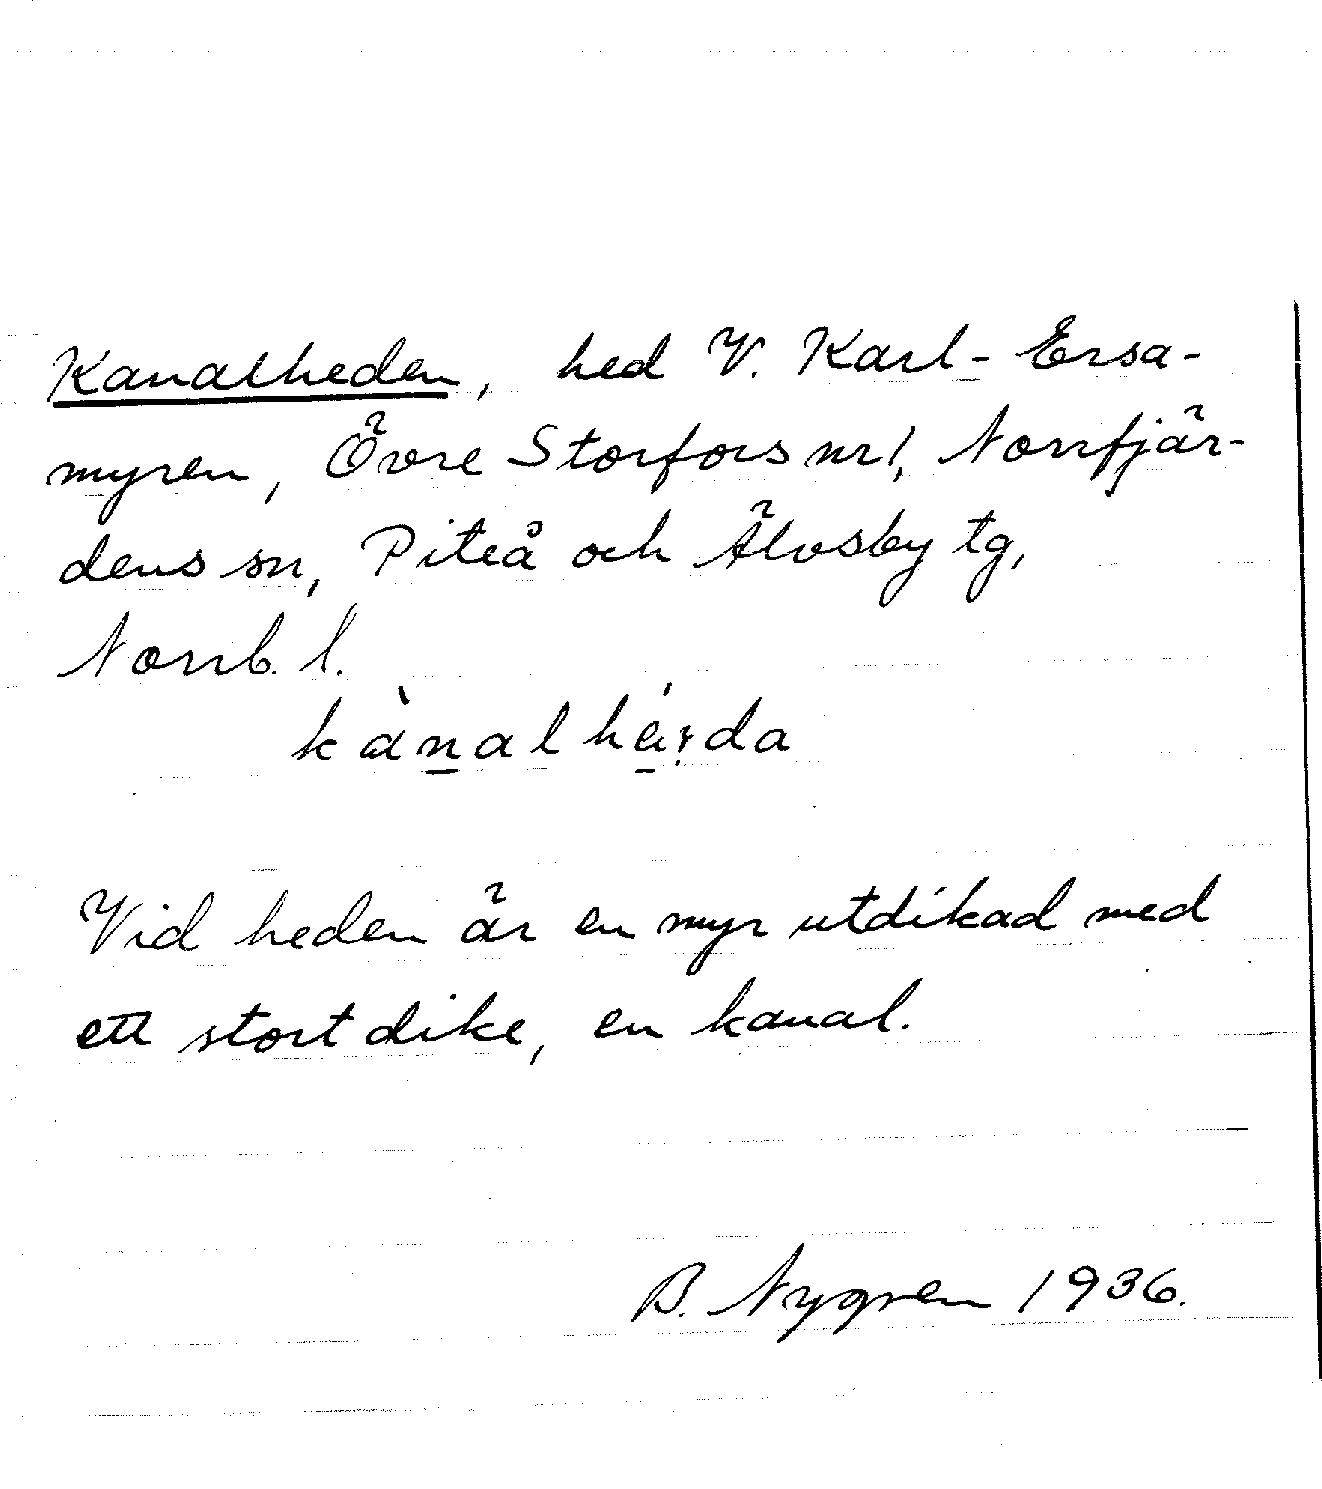 Kanalheden, hed V. Karl-Ersa-
myren, Övre Storfors nr 1, Norrfjär-
dens sn, Piteå och Älvsby tg,
Norrb. l.
Vid heden är en myr utdikad med
ett stort dike, en kanal.
B. Nygren 1936.